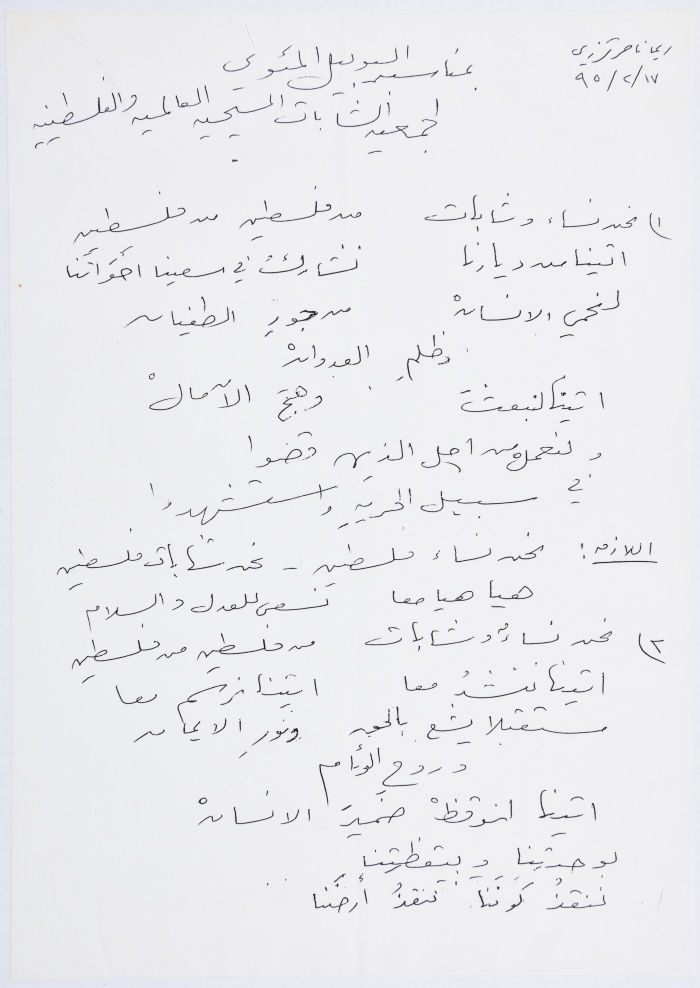 ريما ناصر ترزي
٩٥/٢/١٧
بمناسبة اليوبيل المئوي
لجمعية الشابات المسيحية العالمية والفلسطينية
١) نحن نساء وشابات من فلسطين من فلسطين
اتينا من ديارنا نشارك في سعينا اخوَاتَنا
لنحمي الانسانْ من جورِ الطغيان
وظلمِ العدوانْ
اتينا لنبعث وهجَ الآمالْ
ولنعمل من اجل الذين قضوا
في سبيل الحريةِ واستشهدوا
اللازمه: نحن نساء فلسطين - نحن شابات فلسطين
هيا هيا معا نسعى للعدل والسلام
٢) نحن نساءٌ وشابات من فلسطين من فلسطين
اتينا ننشدُ معا اتينا نرسم معا
مستقبلا يشع بالحب ونورِ الايمان
وروح الوئام
اتينا لنوقظْ ضميرَ الانسانْ
بوحدتِنا وبيقظتِنا
ننقذُ كونَنا ننقذُ أرضَنا